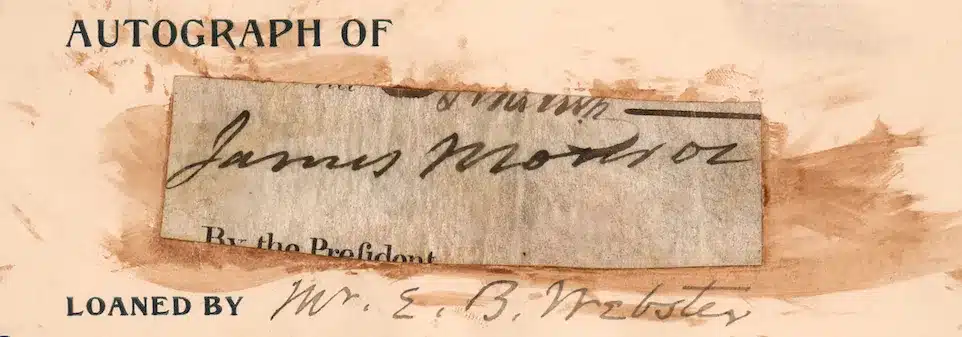 AUTOGRAPH OF
James Monroe
By the Preſident
LOANED BY Mr. E. B. Webster